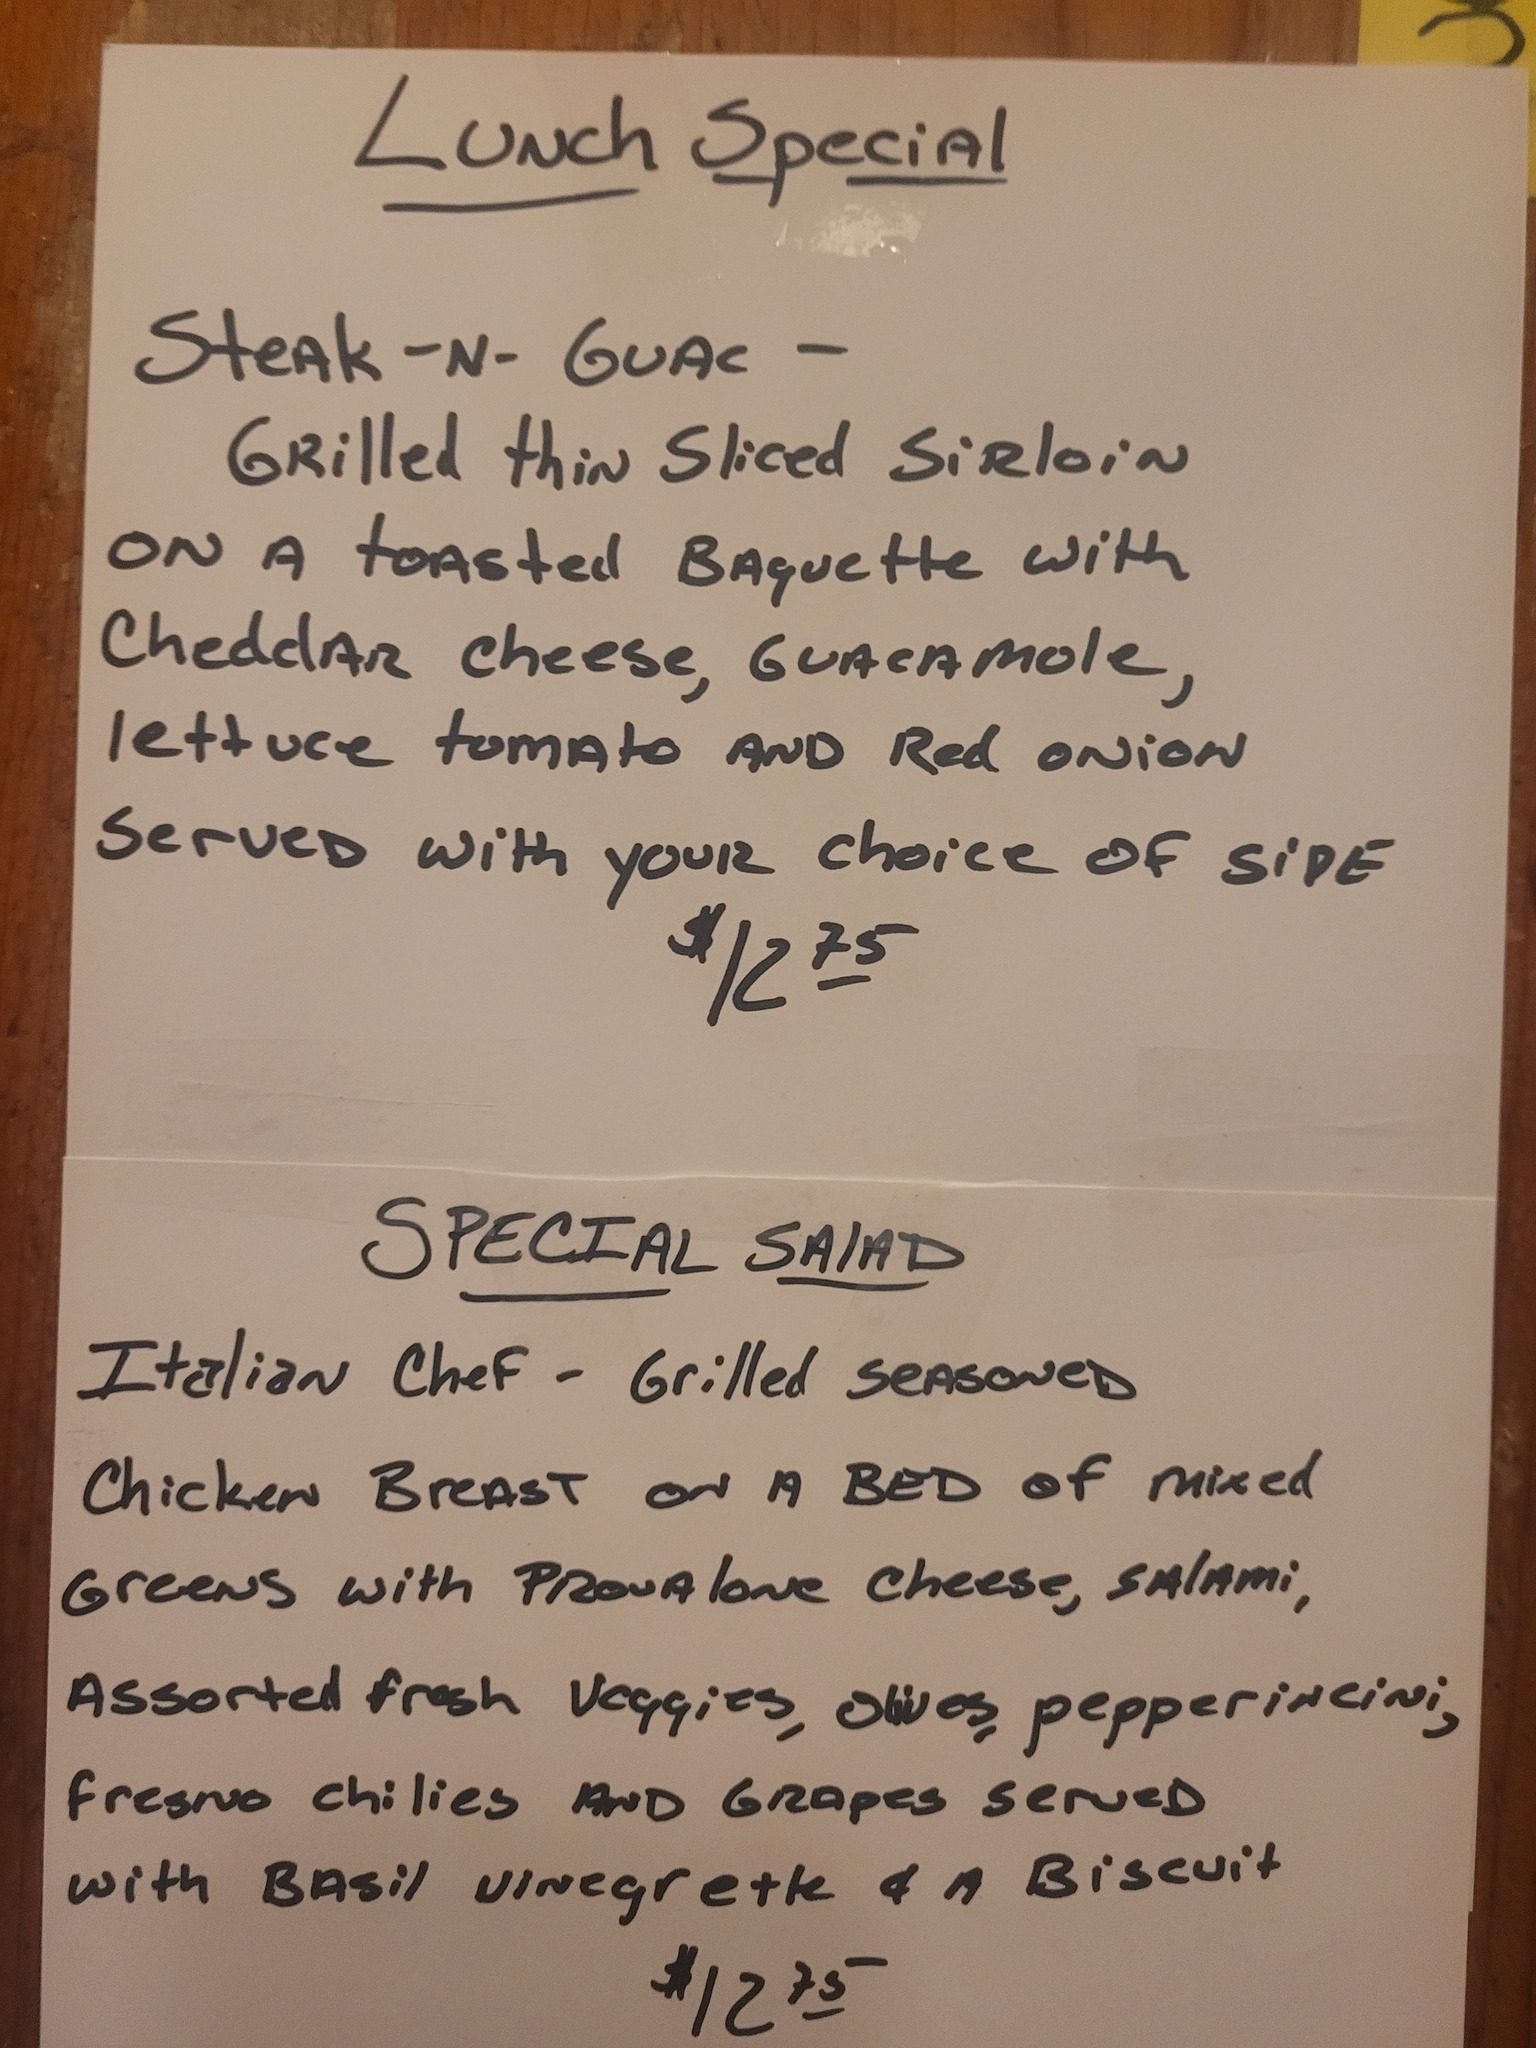 Lunch Special
Steak -N- Guac -
Grilled thin Sliced Sirloin
on a toasted Baguette with
Cheddar cheese, Guacamole,
lettuce tomato and Red onion
Served with your choice of side
$12 75
Special Salad
Italian Chef - Grilled seasoned
Chicken Breast on a Bed of mixed
Greens with Provalone cheese, salami,
Assorted fresh Veggies, olives, pepperincini,
fresno chilies and Grapes served
with Basil vinegrette & a Biscuit
$12 75